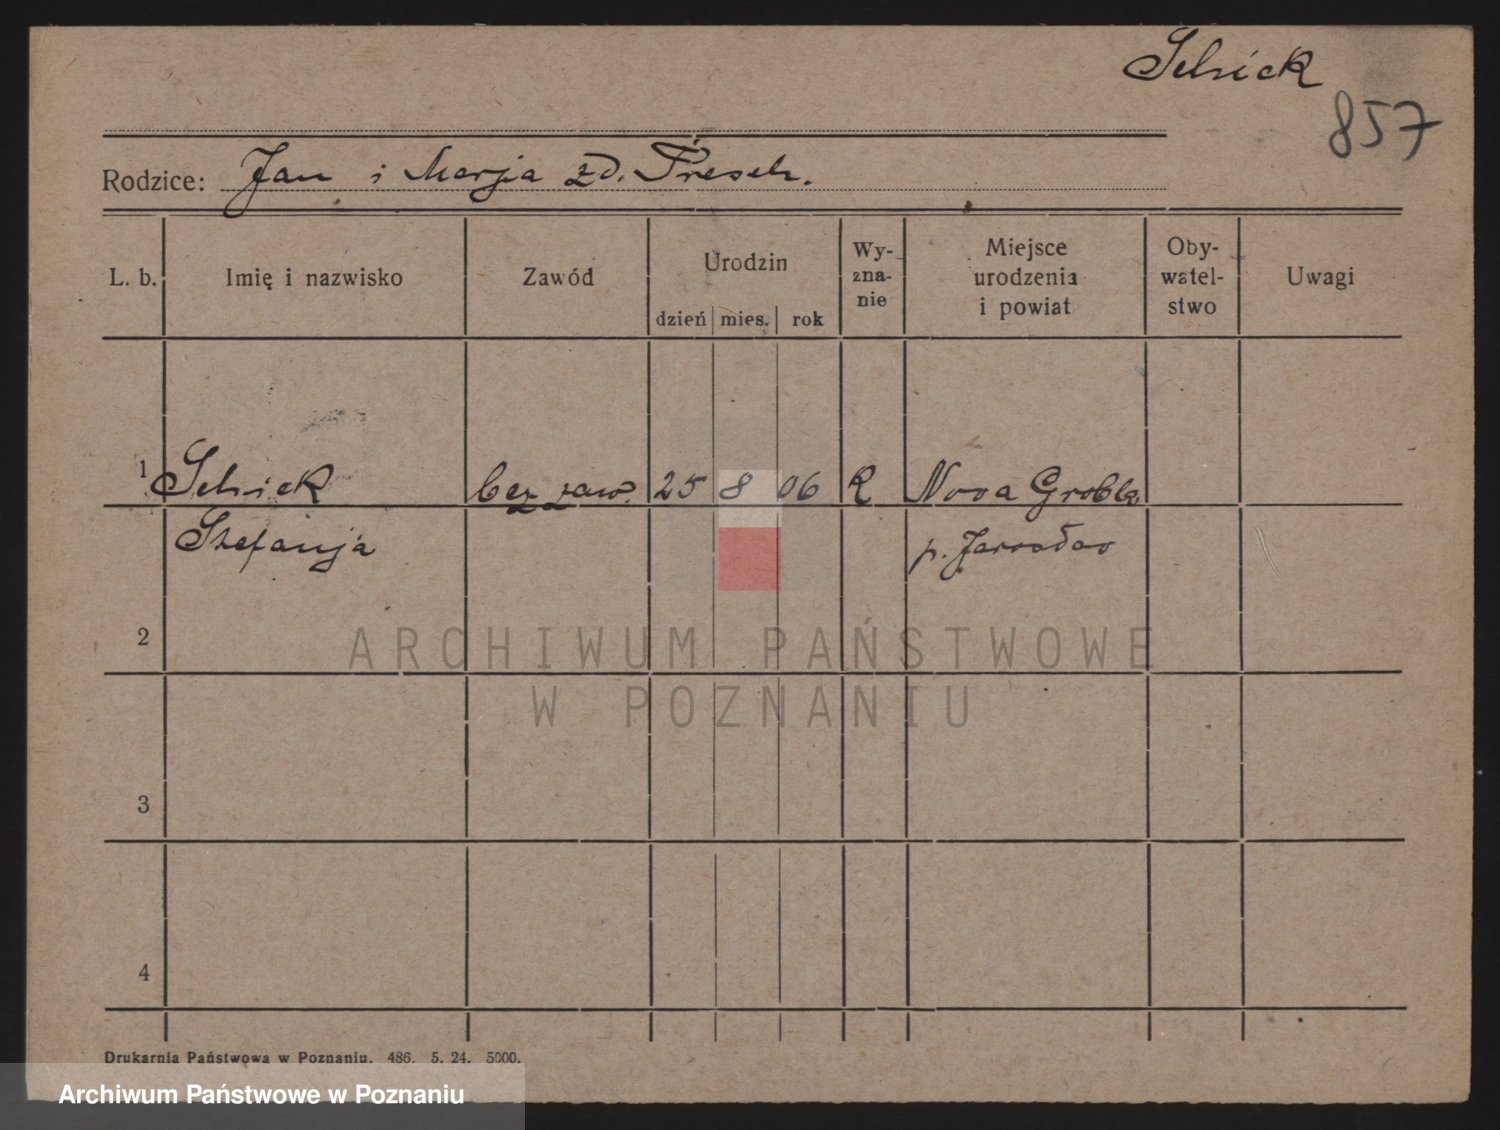 Schick
857
Rodzice: Jan i Marja zd. Presch.
L. b. Imię i nazwisko Zawód Urodzin dzień mies. rok Wy-zna-nie Miejsce urodzenia i powiat Oby-watel-stwo Uwagi
1 Schick bez zaw. 25 8 06 R Nova Grobla
Stefanja p. Jarosław
2
ARCHIWUM PAŃSTWOWE
W POZNANIU
3
4
Drukarnia Państwowa w Poznaniu. 486. 5. 24. 5000.
Archiwum Państwowe w Poznaniu